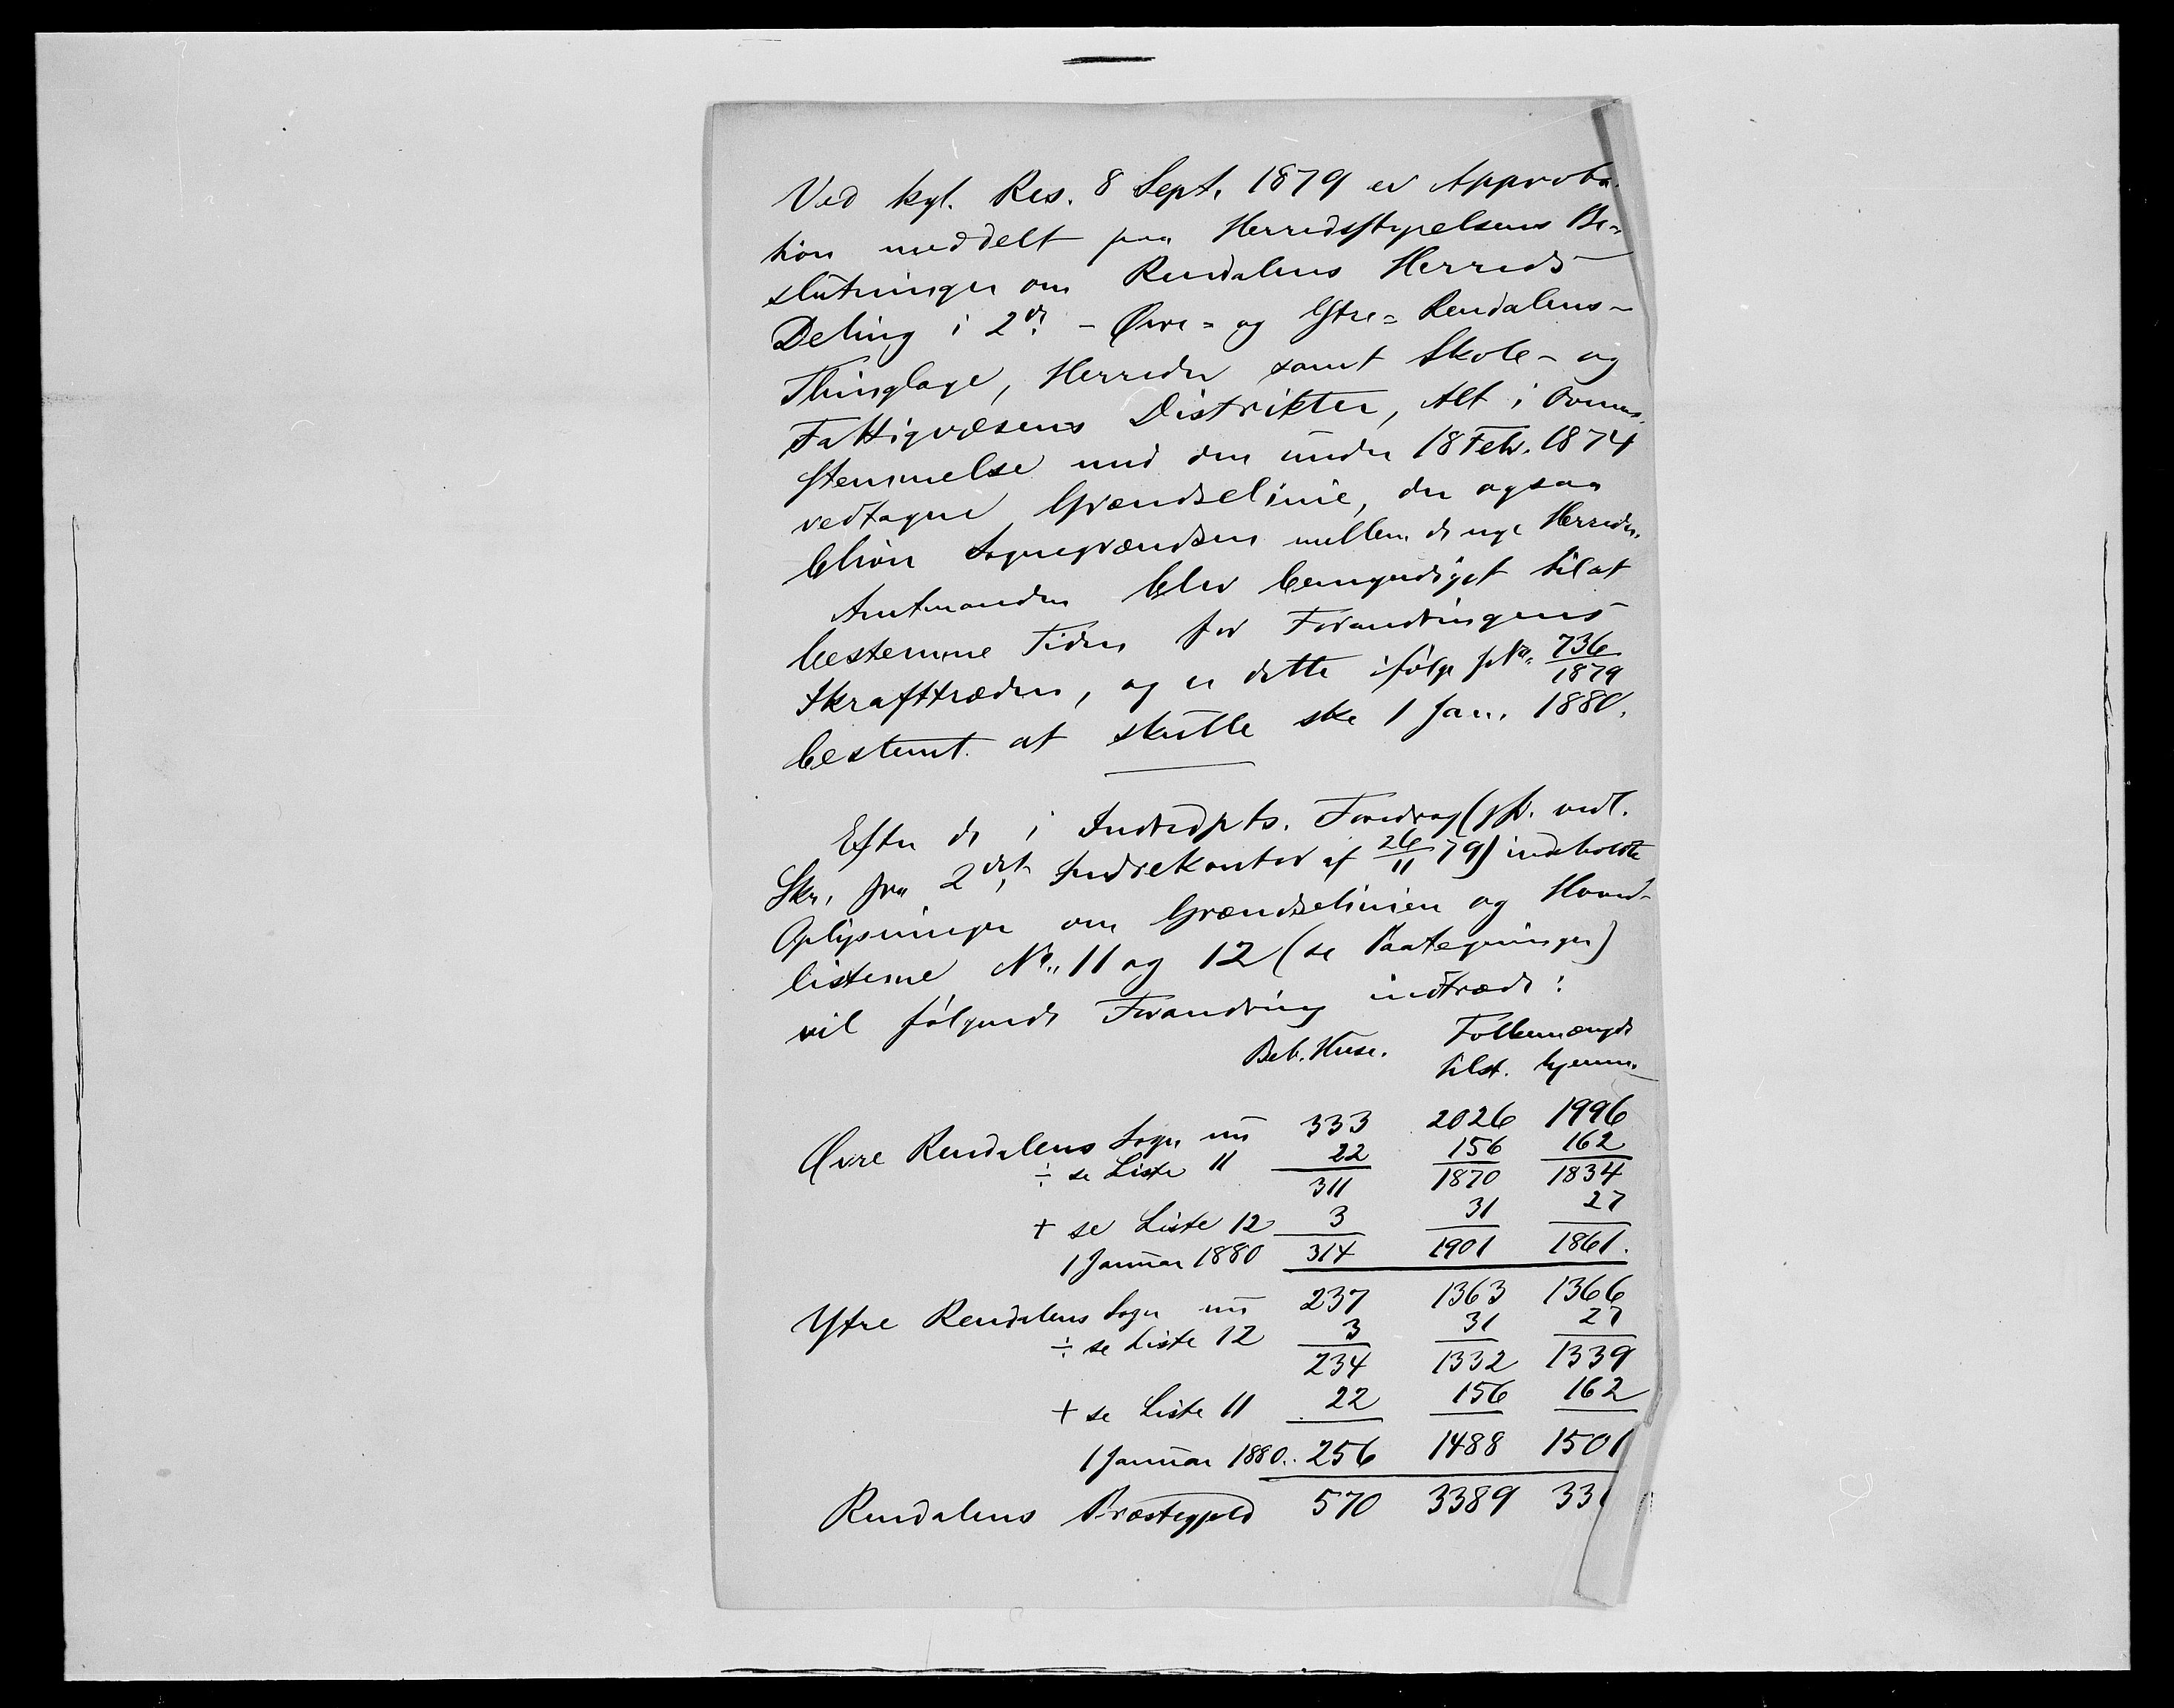 Ved kgl. Res. 8 Sept. 1879 er Approba-
tion meddelt paa Herredsstyrelsens Be-
slutninger om Rendalens Herreds
Deling i 2de - Øvre= og Ytre= Rendalens -
Thinglage, Herreder samt Skole- og
Fattigvæsens Distrikter, Alt i Overens-
stemmelse med den under 18 Febr. 1874
vedtagne Grændselinie, der ogsaa
bliver Sognegrændsen mellem de nye Herreder.
Amtmanden blev bemyndiget til at
bestemme Tiden for Forandringens
Ikrafttræden, og er dette ifølge No. 736/1879
bestemt at skulle ske 1 Jan. 1880.
Efter de i Indredpts. Foredrag (jfr. vedl.
Skr. fra 2det Indrekontor af 26/11 79) indeholdte
Oplysninger om Grændselinien og Hoved-
listerne No. 11 og 12 (se Paategninger)
vil følgende Forandring indtræde:
Beb. Huse. Folkemængde
tilst. hjemm.
Øvre Rendalens Sogn nu 333 2026 1996
÷ se Liste 11 22 156 162
311 1870 1834
+ se Liste 12 3 31 27
1 Januar 1880 314 1901 1861.
Ytre Rendalens Sogn nu 237 1363 1366
÷ se Liste 12 3 31 27
234 1332 1339
+ se Liste 11 22 156 162
1 Januar 1880.. 256 1488 1501
Rendalens Præstegjeld 570 3389